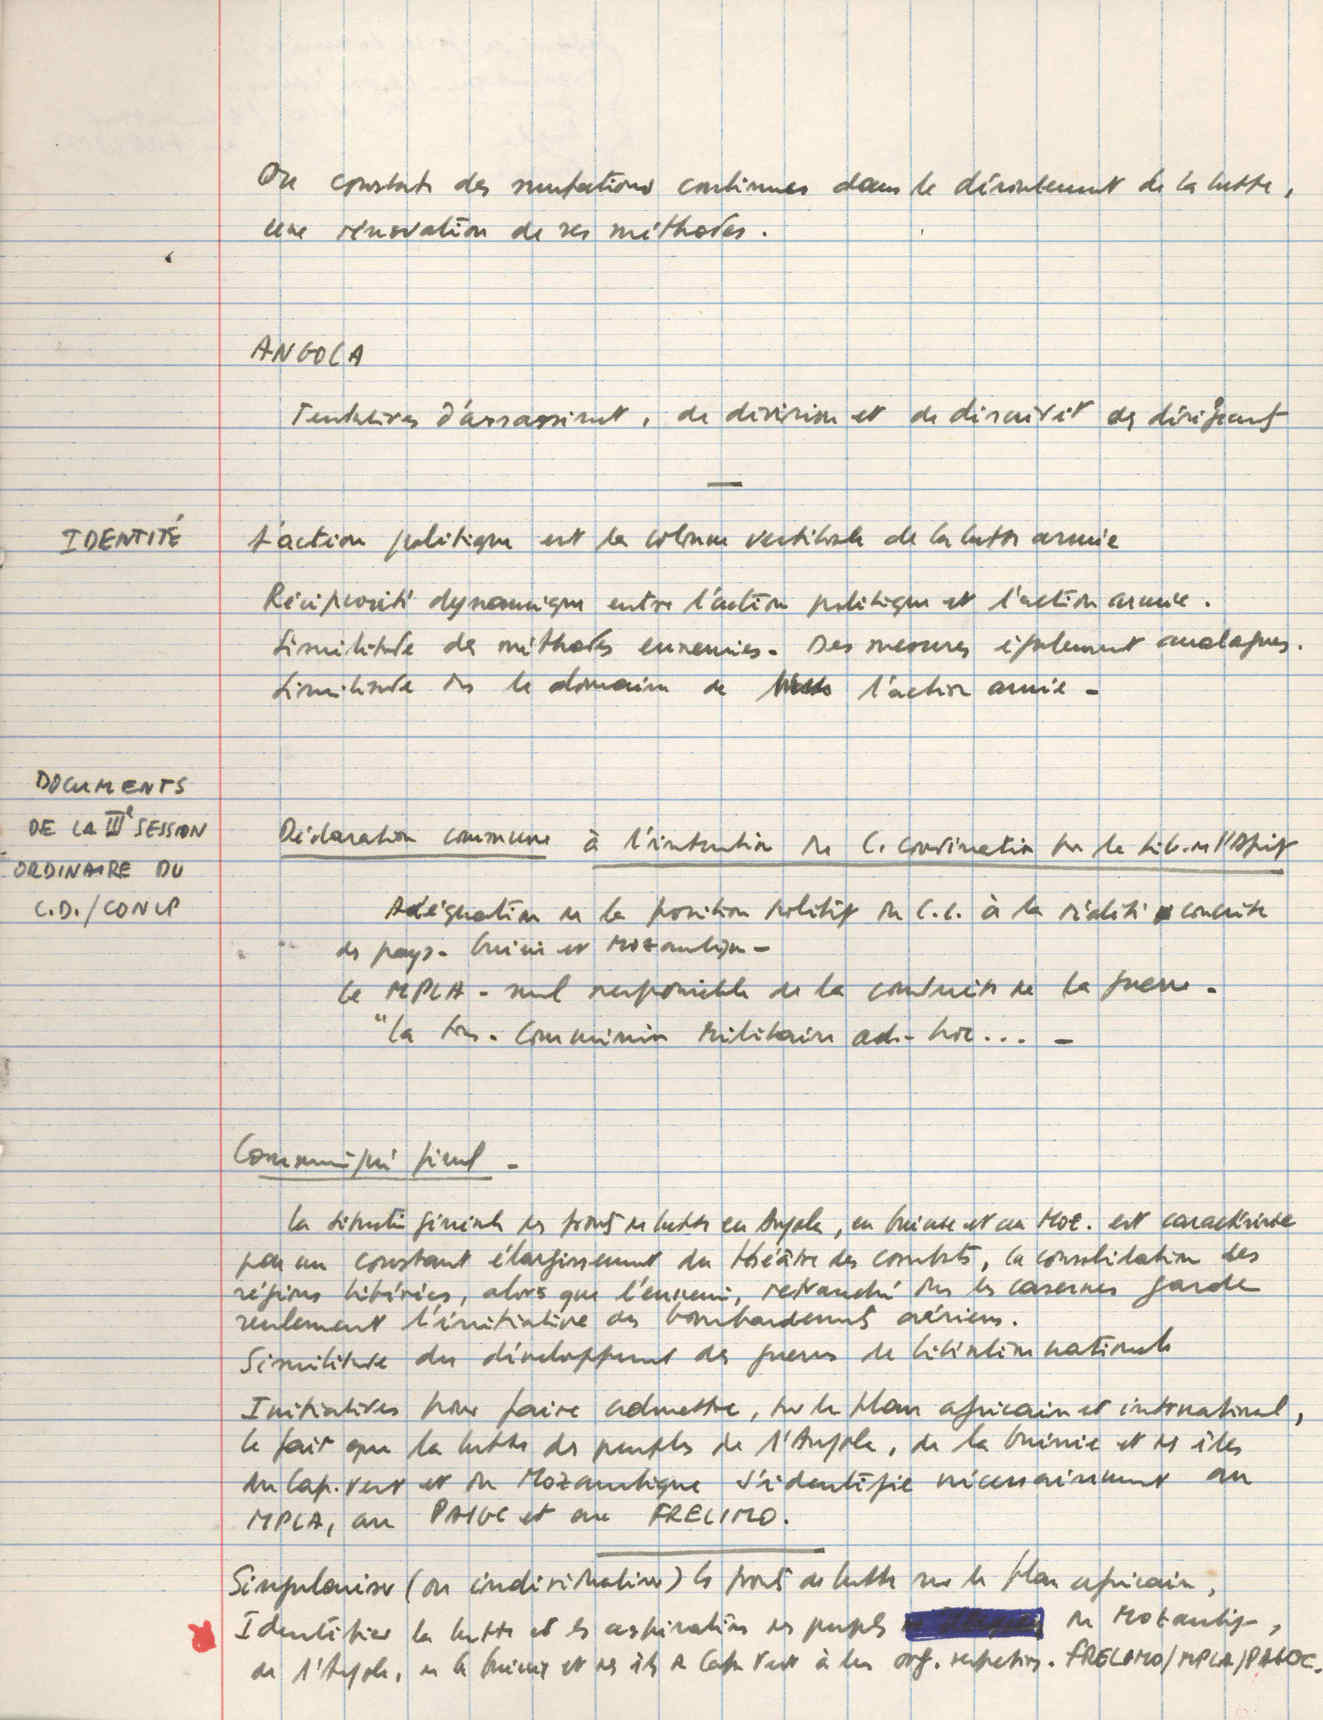 On constate des mutations continues dans le déroulement de la lutte,
une rénovation de ses méthodes.
ANGOLA
Tentatives d'assassinat, de division et de discrédit des dirigeants
IDENTITÉ
L'action politique est la colonne vertébrale de la lutte armée
Réciprocité dynamique entre l'action politique et l'action armée.
Similitude des méthodes ennemies - Des mesures également analogues.
Similitude ds le domaine de l'action armée -
DOCUMENTS
DE LA IIIe SESSION
ORDINAIRE DU
C.D./CONCP
Déclaration commune à l'intention du C. Coordination pr la Lib. de l'Afriq
Adéquation de la position politiq du C.C. à la réalité concrète
des pays - Guinée et Mozambique -
Le MPLA - seul responsable de la conduite de la guerre -
"La Com. Militaire ad-hoc ... -
Communiqué final -
La situation générale des fronts de lutte en Angola, en Guinée et au Moz. est caractérisée
par un constant élargissement du théâtre des combats, la consolidation des
régions libérées, alors que l'ennemi, retranché ds les casernes garde
seulement l'initiative des bombardements aériens.
Similitude du développement des guerres de libération nationale
Initiatives pour faire admettre, sur le plan africain et international,
le fait que la lutte des peuples de l'Angola, de la Guinée et des îles
du Cap-Vert et du Mozambique s'identifie nécessairement au
MPLA, au PAIGC et au FRELIMO.
Singulariser (ou individualiser) les fronts de lutte sur le plan africain,
Identifier la lutte et les aspirations des peuples du Mozambiq,
de l'Angola, de la Guinée et des îles du Cap Vert à leurs org. respectives. FRELIMO/MPLA/PAIGC.